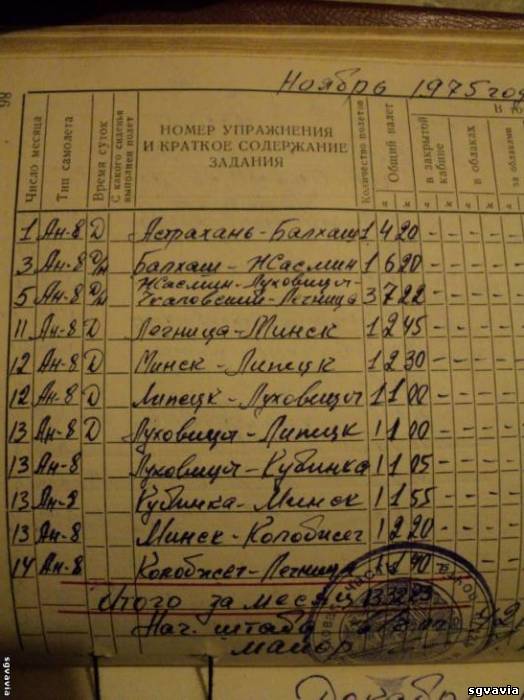 98
Ноябрь 1975 год
Число месяца
Тип самолета
Время суток
С какого сиденья выполнен полет
НОМЕР УПРАЖНЕНИЯ
И КРАТКОЕ СОДЕРЖАНИЕ
ЗАДАНИЯ
Количество полетов
Общий налет
В
в закрытой кабине
в облаках
за облаками
ч м ч м ч м ч
1 Ан-8 Д Астрахань-Балхаш 1 4 20 - - - - -
3 Ан-8 Д/н Балхаш-Жасмин 1 6 20 - - - - -
5 Ан-8 Д/н Жасмин-Луховицы-
Чкаловский-Легница 3 7 22 - - - - -
11 Ан-8 Д Легница-Минск 1 2 45 - - - - -
12 Ан-8 Д Минск-Липецк 1 2 30 - - - - -
12 Ан-8 Д Липецк-Луховицы 1 1 00 - - - - -
13 Ан-8 Д Луховицы-Липецк 1 1 00 - - - - -
13 Ан-8 Луховицы-Кубинка 1 1 05 - - - - -
13 Ан-8 Кубинка-Минск 1 1 55 - - - - -
13 Ан-8 Минск-Колобжег 1 2 20 - - - - -
14 Ан-8 Колобжег-Легница 1 2 40 - - - -
Итого за месяц 13
Нач. штаба
майор
Декабрь
sgvavia
sgvavia